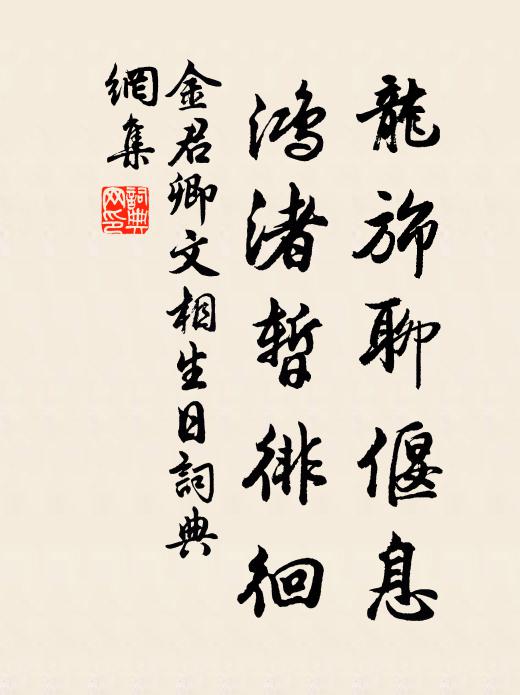 龍旂聊偃息
鴻渚暫徘徊
金君卿文相生日詞典
網集
詞典網印